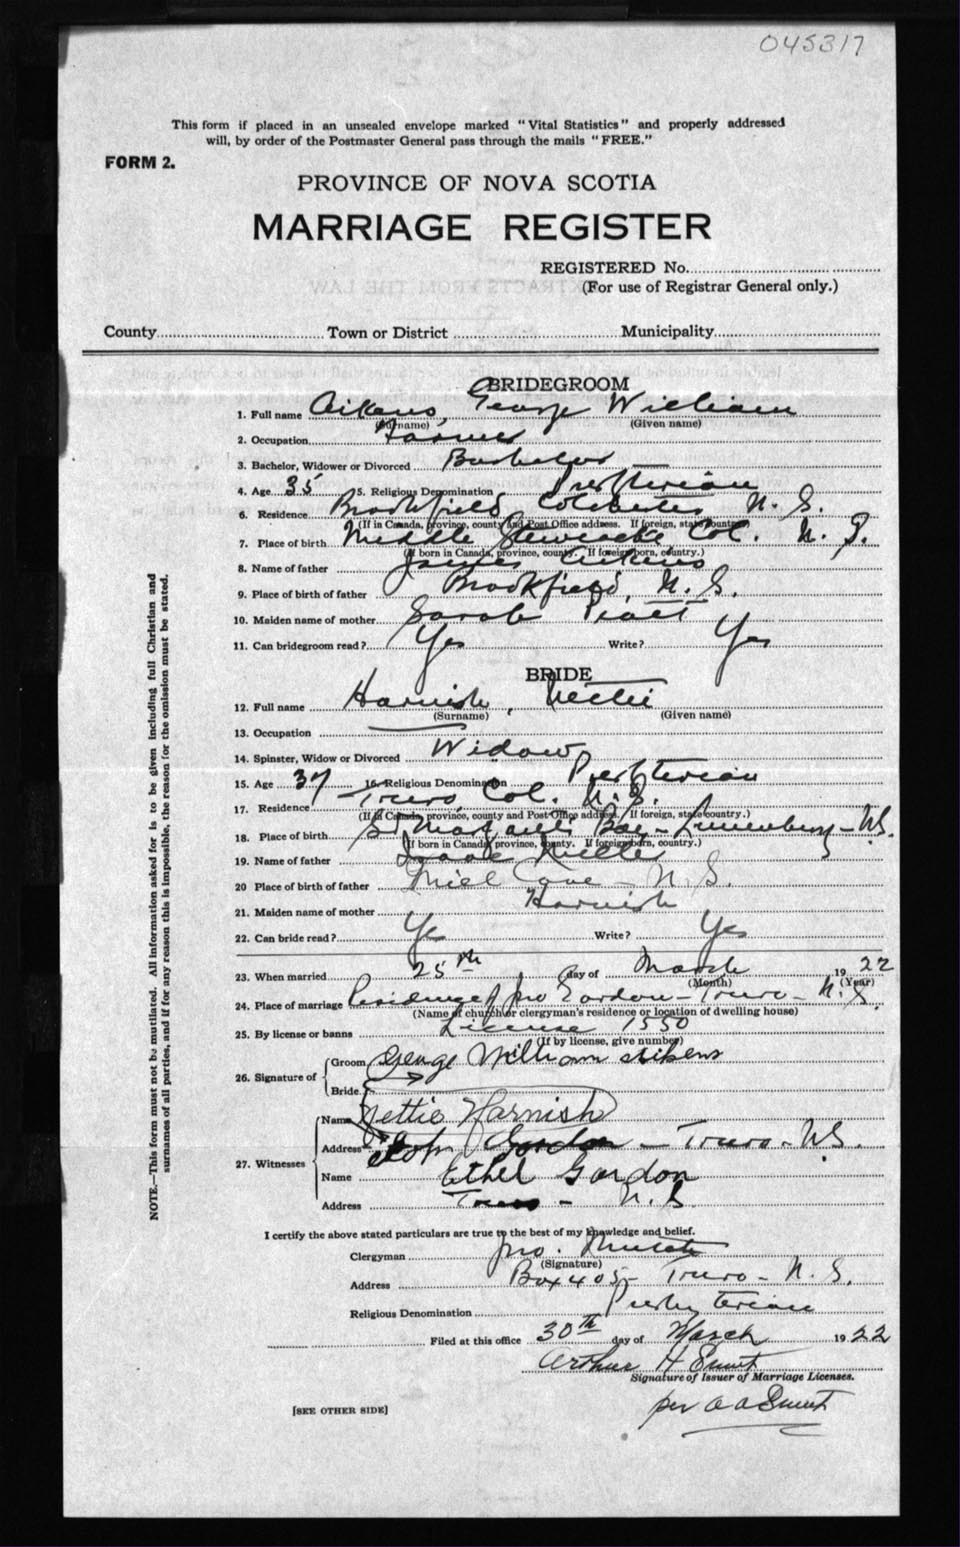 045317
This form if placed in an unsealed envelope marked "Vital Statistics" and properly addressed
will, by order of the Postmaster General pass through the mails "FREE."
FORM 2.
PROVINCE OF NOVA SCOTIA
MARRIAGE REGISTER
REGISTERED No.
(For use of Registrar General only.)
County Town or District Municipality
BRIDEGROOM
1. Full name Aikens, George William
(Surname) (Given name)
2. Occupation Farmer
3. Bachelor, Widower or Divorced Bachelor
4. Age 35 5. Religious Denomination Presbyterian
6. Residence Brookfield, Colchester N. S.
(If in Canada, province, county and Post Office address. If foreign, state country.)
7. Place of birth Middle Stewiacke Col. N. S.
(If born in Canada, province, county. If foreign born, country.)
8. Name of father James Aikens
9. Place of birth of father Brookfield, N. S.
10. Maiden name of mother Sarah
11. Can bridegroom read? Yes Write? Yes
BRIDE
12. Full name Harnish, Nettie
(Surname) (Given name)
13. Occupation
14. Spinster, Widow or Divorced Widow
15. Age 37 16. Religious Denomination Presbyterian
17. Residence Truro, Col. N. S.
(If in Canada, province, county and Post Office address. If foreign, state country.)
18. Place of birth St Margaret's Bay - Lunenburg - N.S.
(If born in Canada, province, county. If foreign born, country.)
19. Name of father Isaac
20 Place of birth of father Mill Cove - N. S.
21. Maiden name of mother Harnish
22. Can bride read? Yes Write? Yes
23. When married 25th day of March 1922
(Month) (Year)
24. Place of marriage Residence of Jno Gordon - Truro - N. S.
(Name of church or clergyman's residence or location of dwelling house)
25. By license or banns License 1550
(If by license, give number)
26. Signature of Groom George William Aikens
Bride
Name Nettie Harnish
27. Witnesses Address John Gordon - Truro - N.S.
Name Ethel Gordon
Address Truro - N. S.
I certify the above stated particulars are true to the best of my knowledge and belief.
Clergyman Jno.
(Signature)
Address Box 405 - Truro - N. S.
Religious Denomination Presbyterian
Filed at this office 30th day of March 1922
Arthur H
Signature of Issuer of Marriage Licenses.
per
[SEE OTHER SIDE]
NOTE.—This form must not be mutilated. All information asked for is to be given including full Christian and
surnames of all parties, and if for any reason this is impossible, the reason for the omission must be stated.